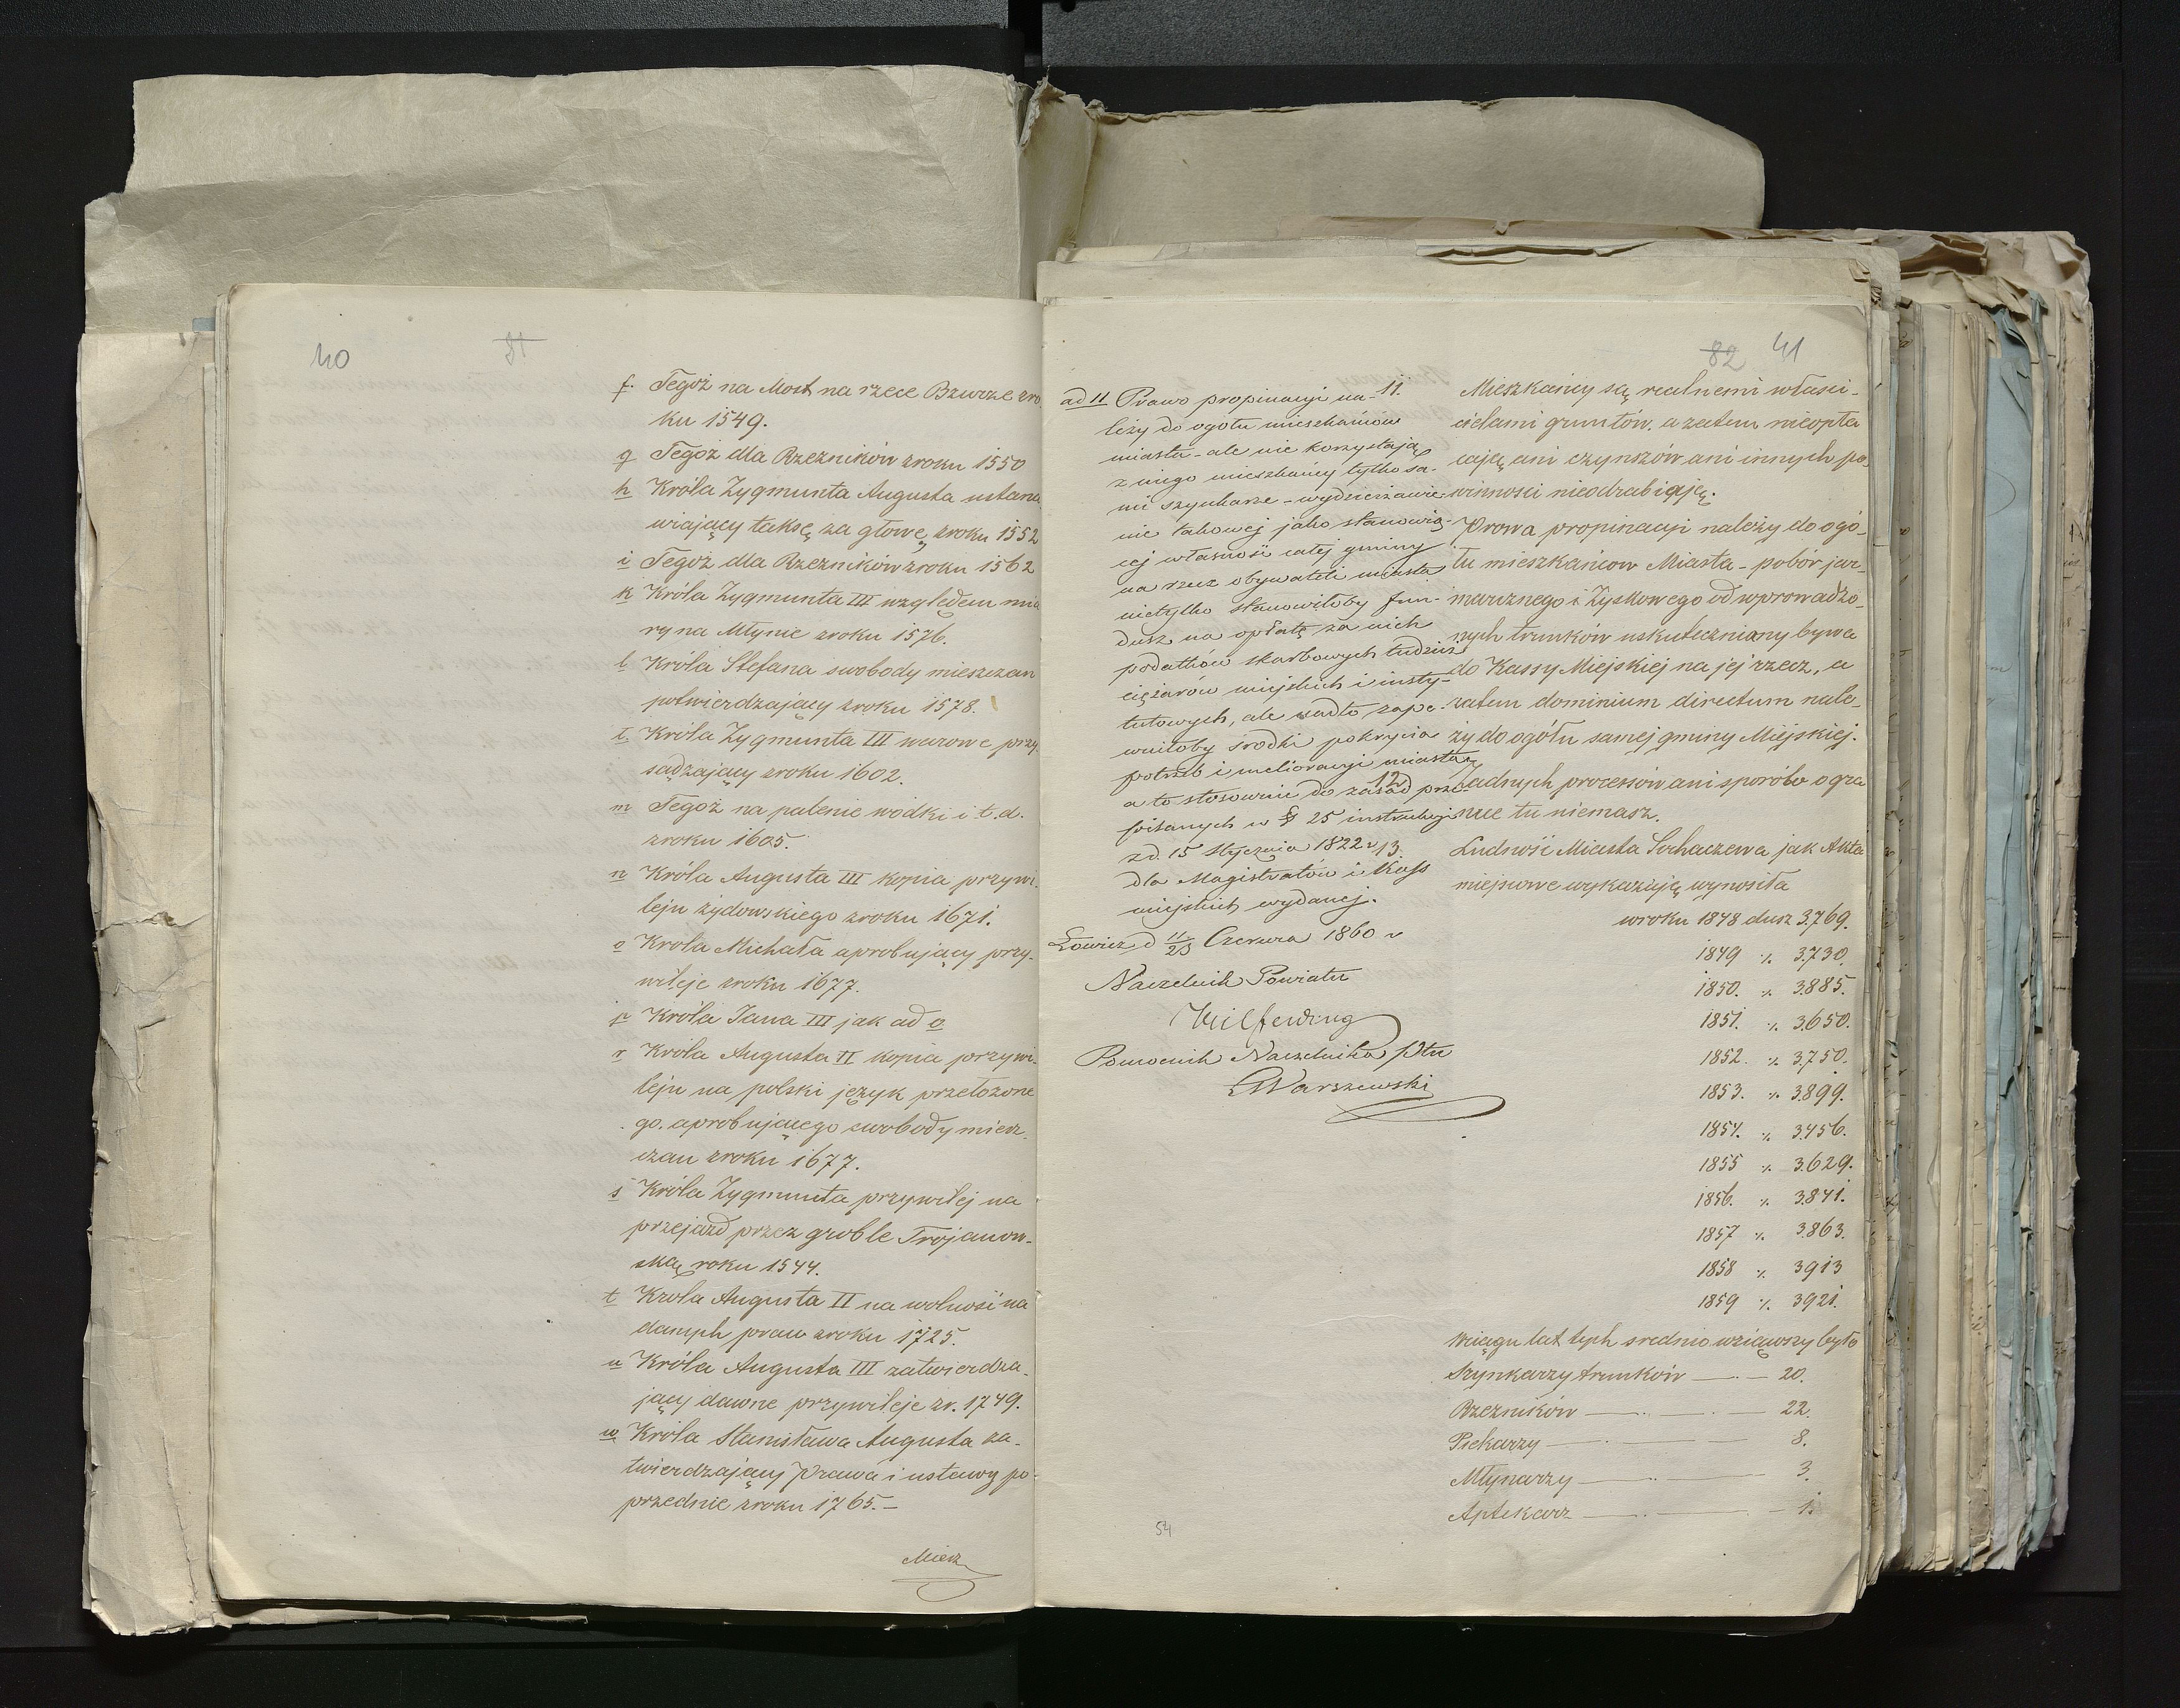 40
81
f. Tegoż na Most na rzece Bzurze zro
ku 1549.
g Tegoż dla Rzezników zroku 1550
h Króla Zygmunta Augusta ustana
wiający taksę za głowę zroku 1552
i Tegoż dla Rzezników zroku 1562
k Króla Zygmunta III względem mia
ry na Młynie zroku 1576.
l Króla Stefana swobody mieszczan
potwierdzający zroku 1578.
ł. Króla Zygmunta III warowe przy
sądzający zroku 1602.
m Tegoż na palenie wódki i t.d.
zroku 1605.
n Króla Augusta III kopia przywi.
leju żydowskiego zroku 1671.
o Krola Michała aprobujący przy-
wileje zroku 1677.
p Króla Jana III jak ad o
r Króla Augusta II kopia przywi-
leju na polski język przełożone
go. aprobującego swobody miesz.
czan zroku 1677.
s Króla Zygmunta przywilej na
przejazd przez groble Trojanow-
ską roku 1544.
t Krola Augusta II na wolność na
danych praw zroku 1725.
u Króla Augusta III zatwierdza-
jący dawne przywileje zr. 1749.
w Króla Stanisława Augusta za-
twierdzający prawa i ustawy po-
przednie zroku 1765.-
Miesz
82 41
ad 11 Prawo propinacyi na-
leży do ogółu mieszkańców
miasta - ale nie korzystają
z niego mieszkańcy tylko sa-
mi szynkarze - wydzierżawie
nie takowej jako stanowią-
cej własność całej gminy
na rzecz obywateli miasta
nietylko stanowiłoby fun-
dusz na opłatę za nich
podatków skarbowych tudzież
ciężarów miejskich i insty-
tutowych, ale nadto zape-
wniłoby środki pokrycia
potrzeb i melioracyi miasta
a to stosownie do zasad prze-
pisanych w § 25 instrukcyi
z d. 15 Stycznia 1822 r
dla Magistratów i Kass
miejskich wydanej.
Łowicz d 11/23 Czerwca 1860 r
Naczelnik Powiatu
Hilferding
Pomocnik Naczelnika Ptu
Warszewski
54
11. Mieszkańcy są realnemi właści-
cielami gruntów. a zatem nieopła
cają ani czynszów ani innych po-
winności nieodrabiają.
Prawa propinacyi należy do ogó-
łu mieszkańcow Miasta - pobór jar-
marcznego i Zyskowego od wprowadzo-
nych trunków uskuteczniany bywa
do Kassy Miejskiej na jej rzecz, a
zatem dominium directum nale-
ży do ogółu samej gminy Miejskiej.
12 Zadnych processów ani sporów o gra
nice tu niemasz.
13 Ludność Miasta Sochaczewa jak Akta
miejscowe wykazują wynosiła
wroku 1848 dusz 3.769.
1849 " 3.730.
1850. " 3.885.
1851. " 3.650.
1852. " 3.750.
1853. " 3.899.
1854. " 3.456.
1855 " 3.629.
1856. " 3.841.
1857 " 3.863.
1858 " 3913
1859 " 3921.
Wciągu lat tych srednio wziąwszy było
Szynkarzy trunków — 20.
Rzezników — 22.
Piekarzy — 8.
Młynarzy — 3.
Aptekarz — 1.